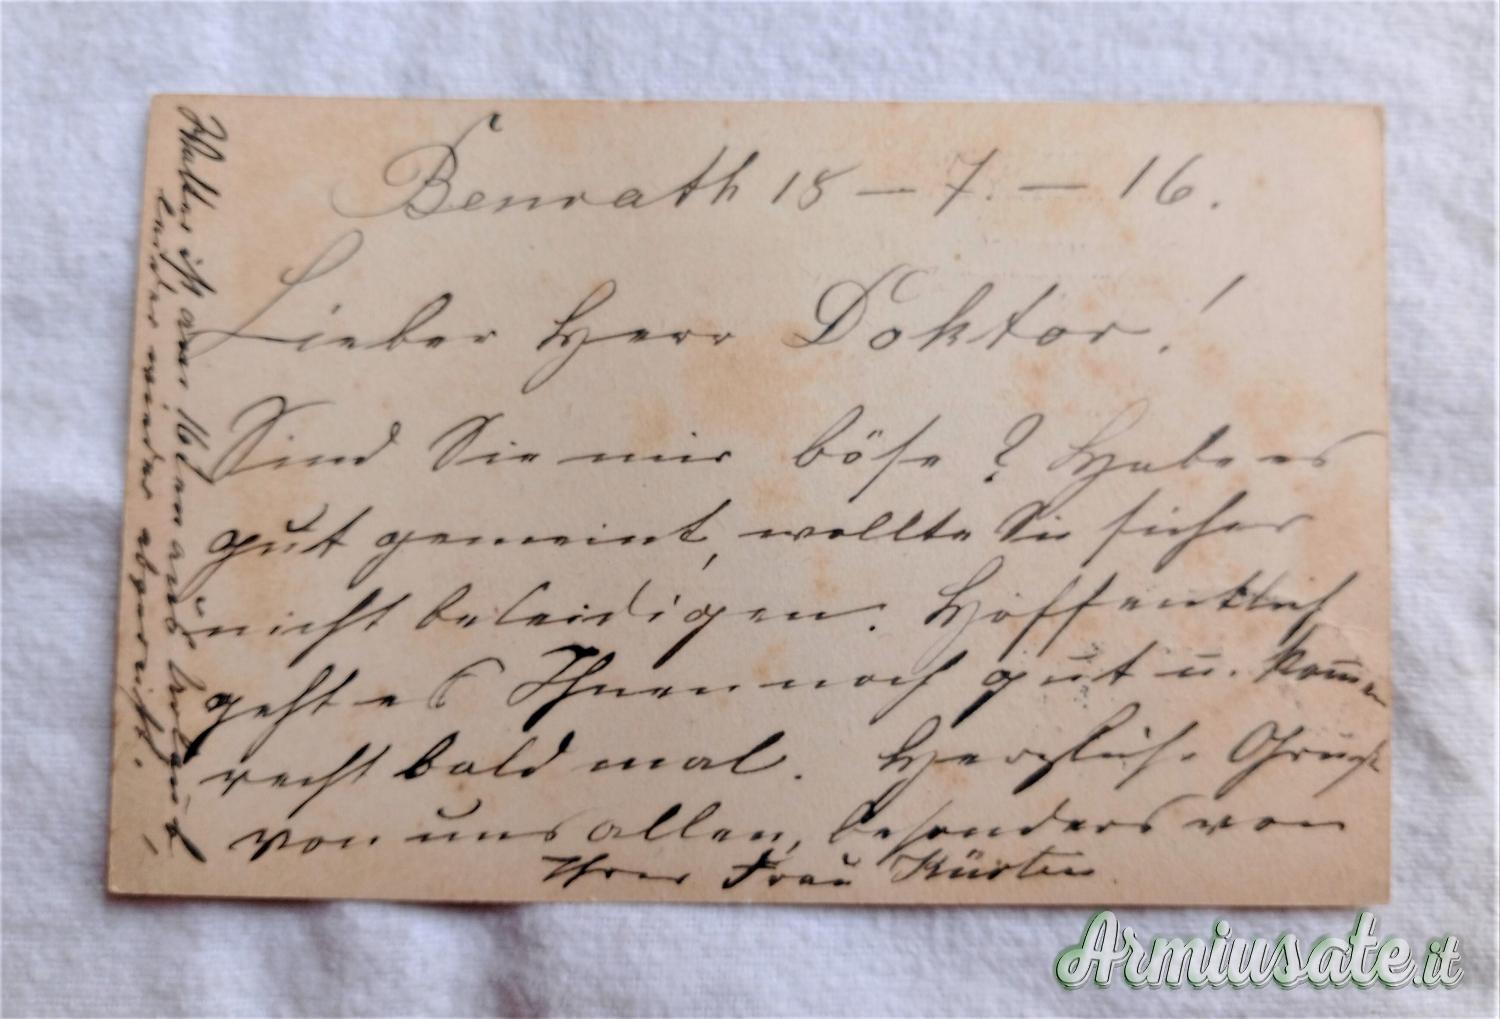 Benrath 18 – 7. – 16.
Lieber Herr Doktor!
Sind Sie mir böse? Habe es
gut gemeint, wollte Sie sicher
nicht beleidigen. Hoffentlich
geht es Ihnen noch gut u. kommen
recht bald mal. Herzliche Grüße
von uns allen, besonders von
Ihrer Frau Kürten
Walter ist am 16ten aus Urlaub
leider wieder abgereist.
Armiusate.it